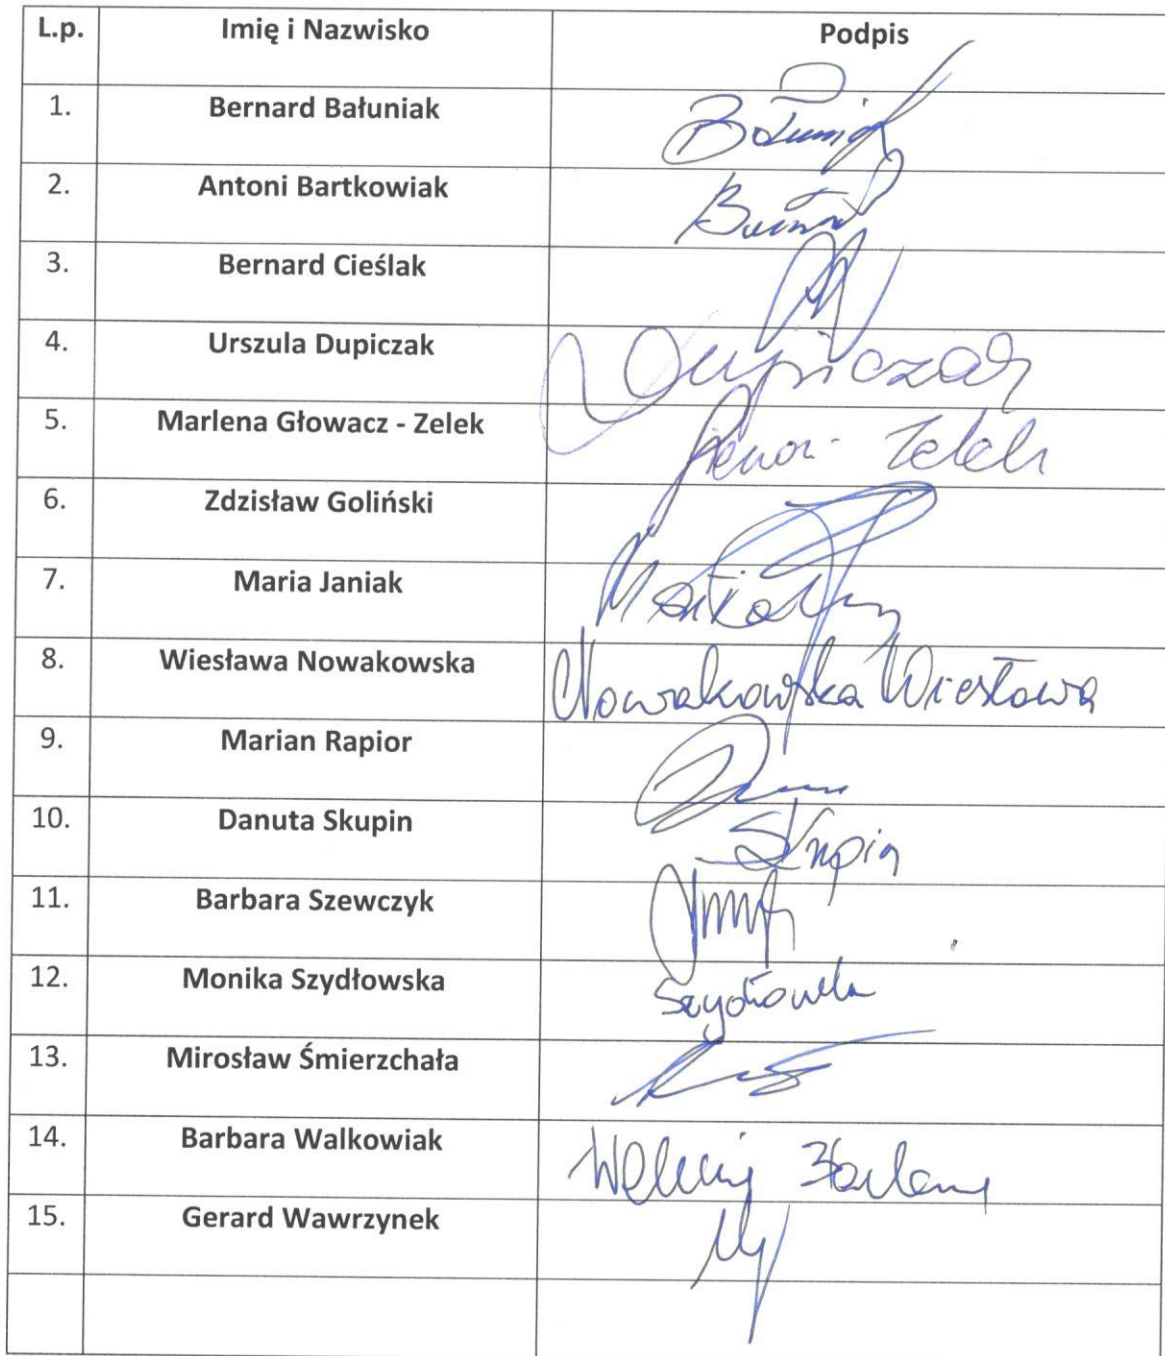 L.p. Imię i Nazwisko Podpis
1. Bernard Bałuniak
2. Antoni Bartkowiak
3. Bernard Cieślak
4. Urszula Dupiczak Dupiczak
5. Marlena Głowacz - Zelek Zelek
6. Zdzisław Goliński
7. Maria Janiak
8. Wiesława Nowakowska Nowakowska Wiesława
9. Marian Rapior
10. Danuta Skupin Skupin
11. Barbara Szewczyk
12. Monika Szydłowska Szydłowska
13. Mirosław Śmierzchała
14. Barbara Walkowiak
15. Gerard Wawrzynek